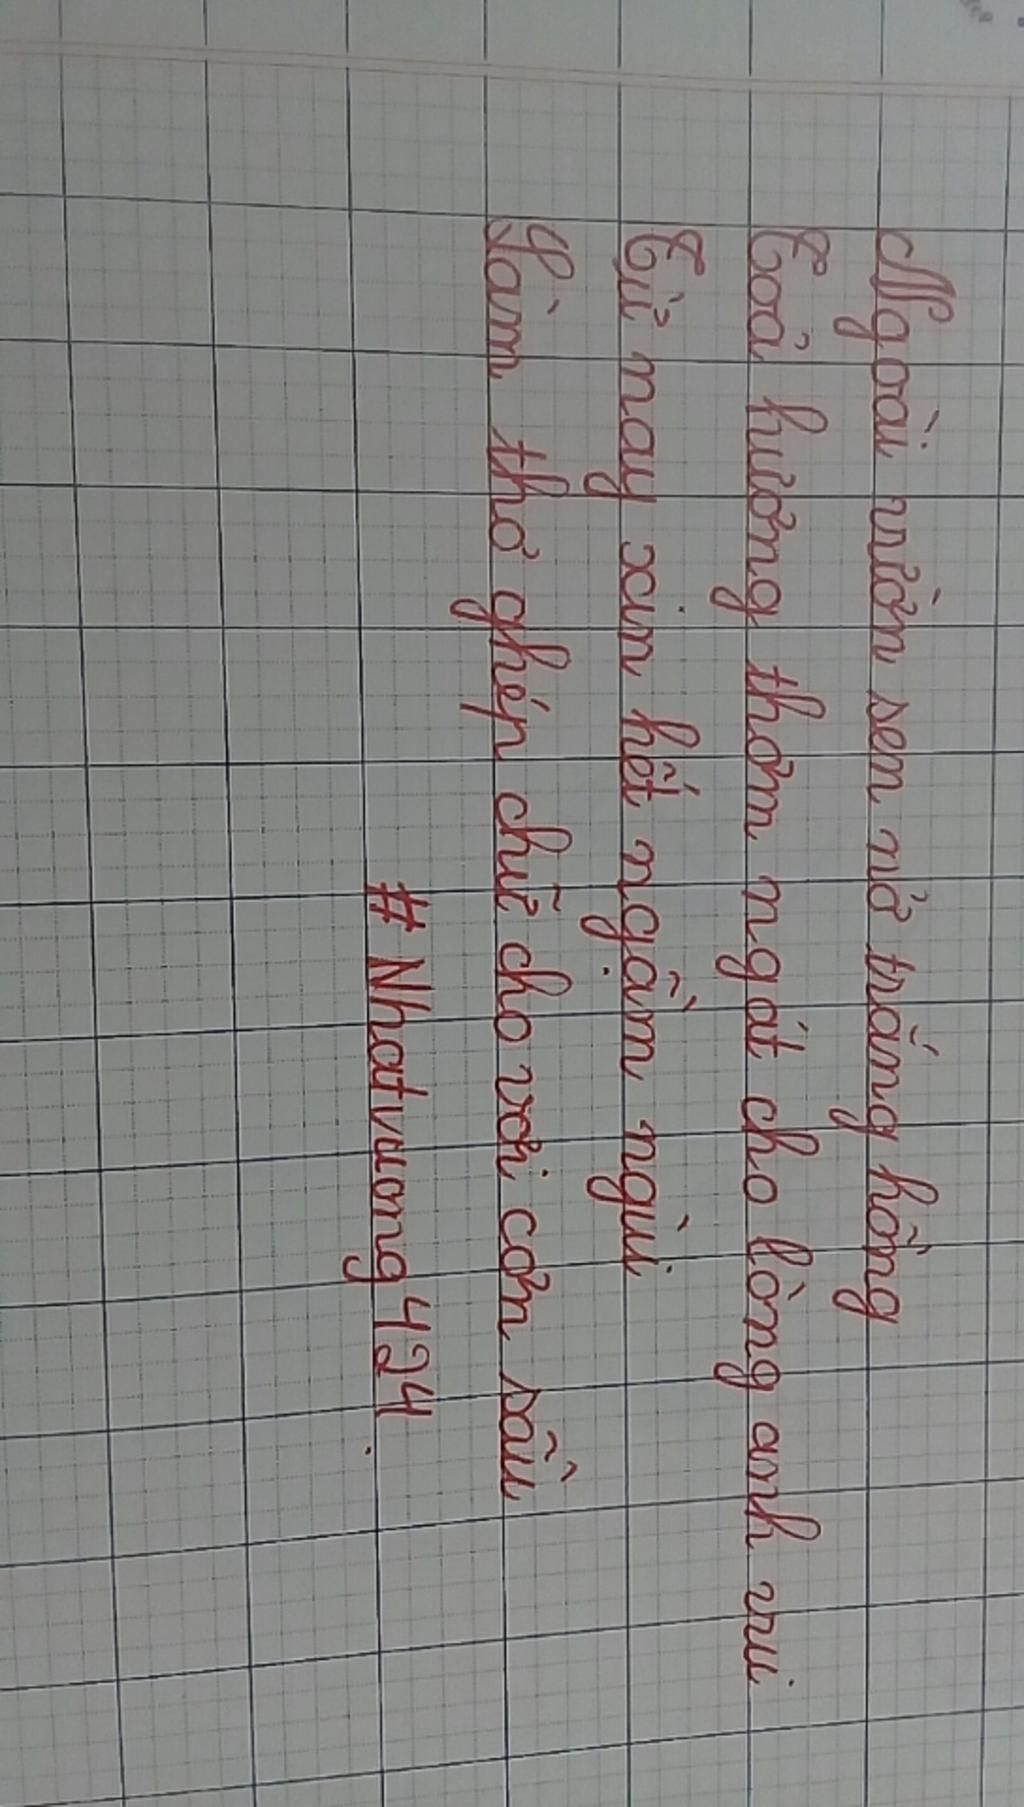 Ngoài vườn sen nở trắng hồng
Toả hương thơm ngát cho lòng anh vui
Từ nay xin hết ngậm ngùi
Làm thơ ghép chữ cho vơi cơn sầu
# Nhatvuong424.